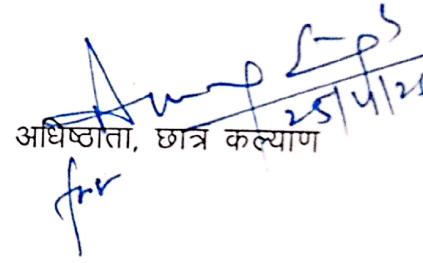 25/4/25
अधिष्ठाता, छात्र कल्याण
for